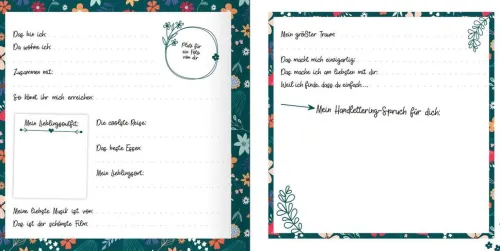 Das bin ich:
Da wohne ich:
Platz für
ein Foto
von dir
Zusammen mit:
So könnt ihr mich erreichen:
Mein Lieblingsoutfit:
Die coolste Reise:
Das beste Essen:
Mein Lieblingsort:
Meine liebste Musik ist von:
Das ist der schönste Film:
Mein größter Traum:
Das macht mich einzigartig:
Das mache ich am liebsten mit dir:
Weil ich finde, dass du einfach...
Mein Handlettering-Spruch für dich: